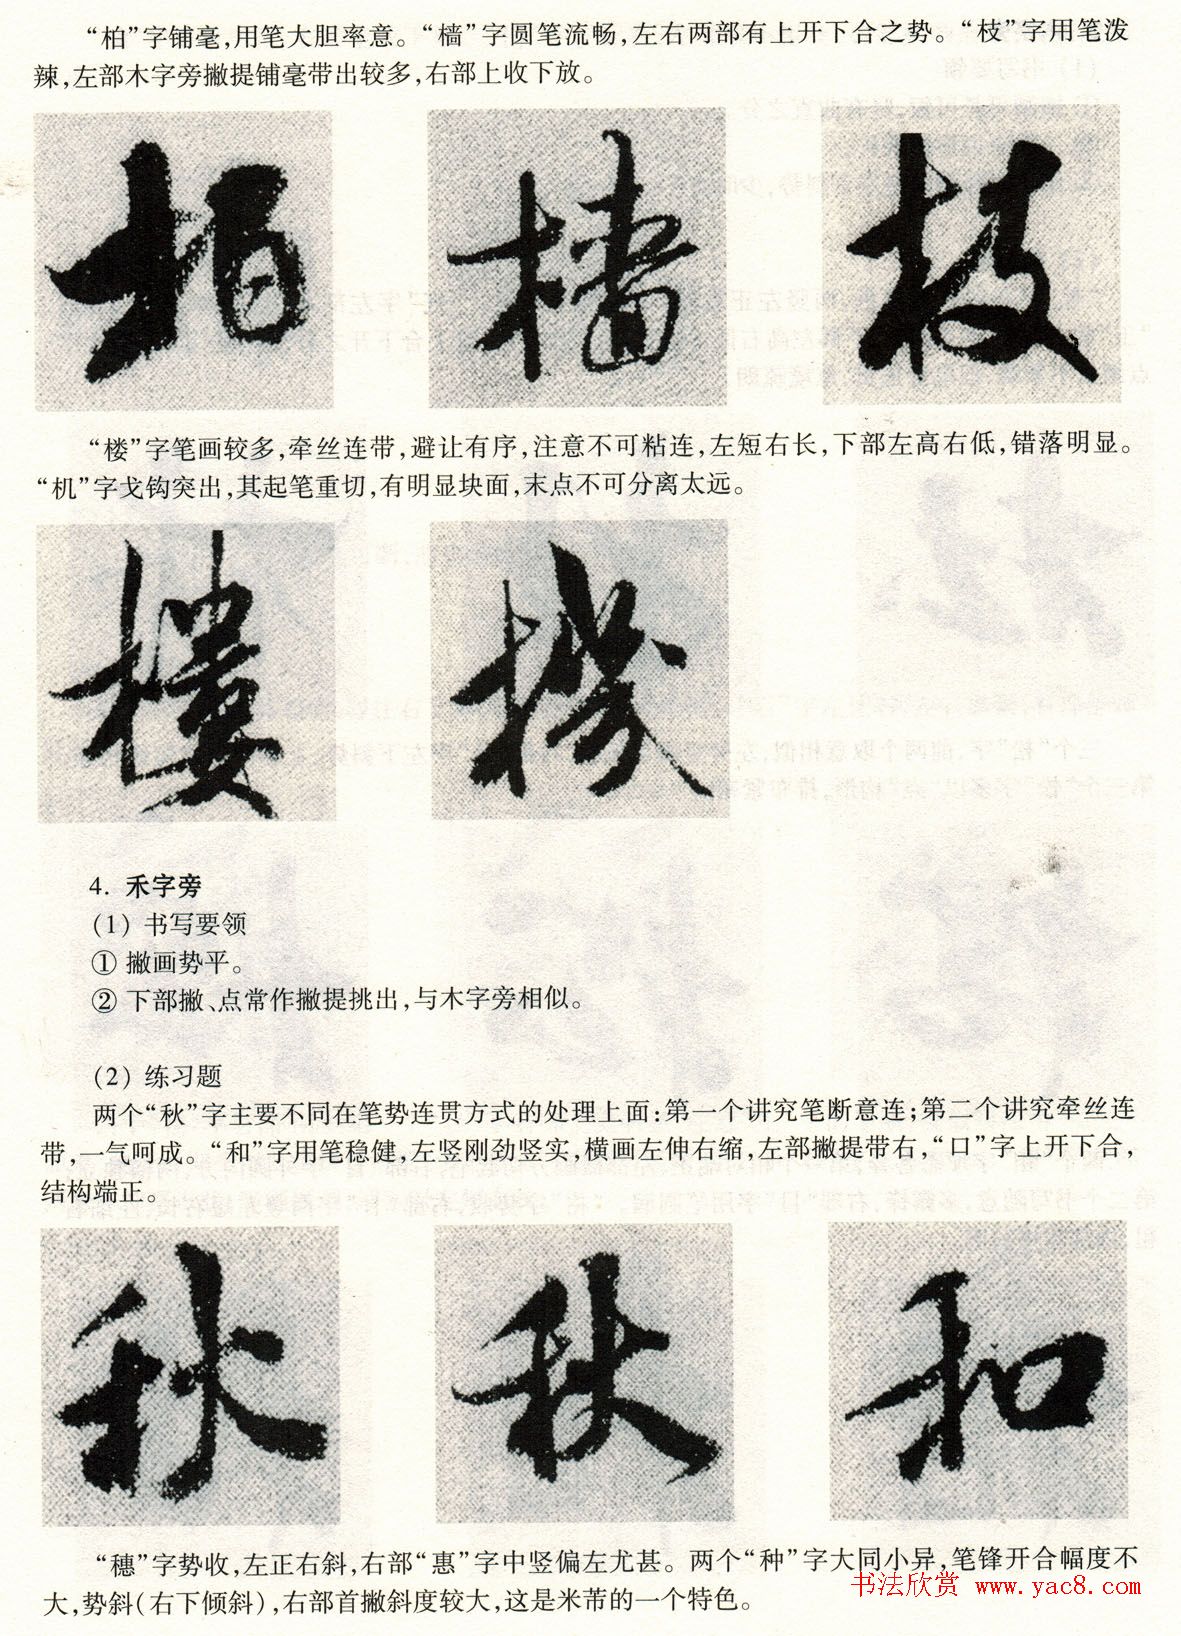 “柏”字铺毫,用笔大胆率意。“樯”字圆笔流畅,左右两部有上开下合之势。“枝”字用笔泼
辣,左部木字旁撇提铺毫带出较多,右部上收下放。
柏 檣 枝
“楼”字笔画较多,牵丝连带,避让有序,注意不可粘连,左短右长,下部左高右低,错落明显。
“机”字戈钩突出,其起笔重切,有明显块面,末点不可分离太远。
樓 機
4. 禾字旁
(1) 书写要领
① 撇画势平。
② 下部撇、点常作撇提挑出,与木字旁相似。
(2) 练习题
两个“秋”字主要不同在笔势连贯方式的处理上面:第一个讲究笔断意连;第二个讲究牵丝连
带,一气呵成。“和”字用笔稳健,左竖刚劲竖实,横画左伸右缩,左部撇提带右,“口”字上开下合,
结构端正。
秋 秋 和
“穗”字势收,左正右斜,右部“惠”字中竖偏左尤甚。两个“种”字大同小异,笔锋开合幅度不
大,势斜(右下倾斜),右部首撇斜度较大,这是米芾的一个特色。
书法欣赏 www.yac8.com